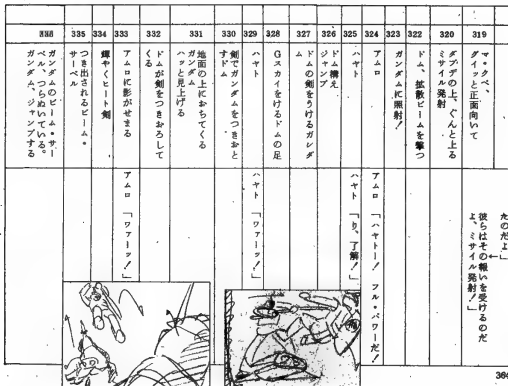 たのだよ」
319
マ・クベ、
グイッと正面向いて
彼らはその報いを受けるのだ
よ、ミサイル発射!」
320
ダブデの上、ぐんと上る
ミサイル発射
322
ドム、拡散ビームを撃つ
323
ガンダムに照射!
324
アムロ
アムロ 「ハヤトー! フル・パワーだ!」
325
ハヤト
ハヤト 「り、了解!」
326
ドム構え
ジャンプ
327
ドムの剣をうけるガンダ
ム
328
Gスカイをけるドムの足
329
ハヤト
ハヤト 「ワァーッ!」
330
剣でガンダムをつきおと
すドム
331
地面の上におちてくる
ガンダム
ハッと見上げる
332
ドムが剣をつきおろして
くる
333
アムロに影がせまる
アムロ 「ワァーッ!」
334
輝やくヒート剣
335
つき出されるビーム・
サーベル
ガンダムのビーム・サー
ベル、つらぬいている。
ガンダム、ジャンプする